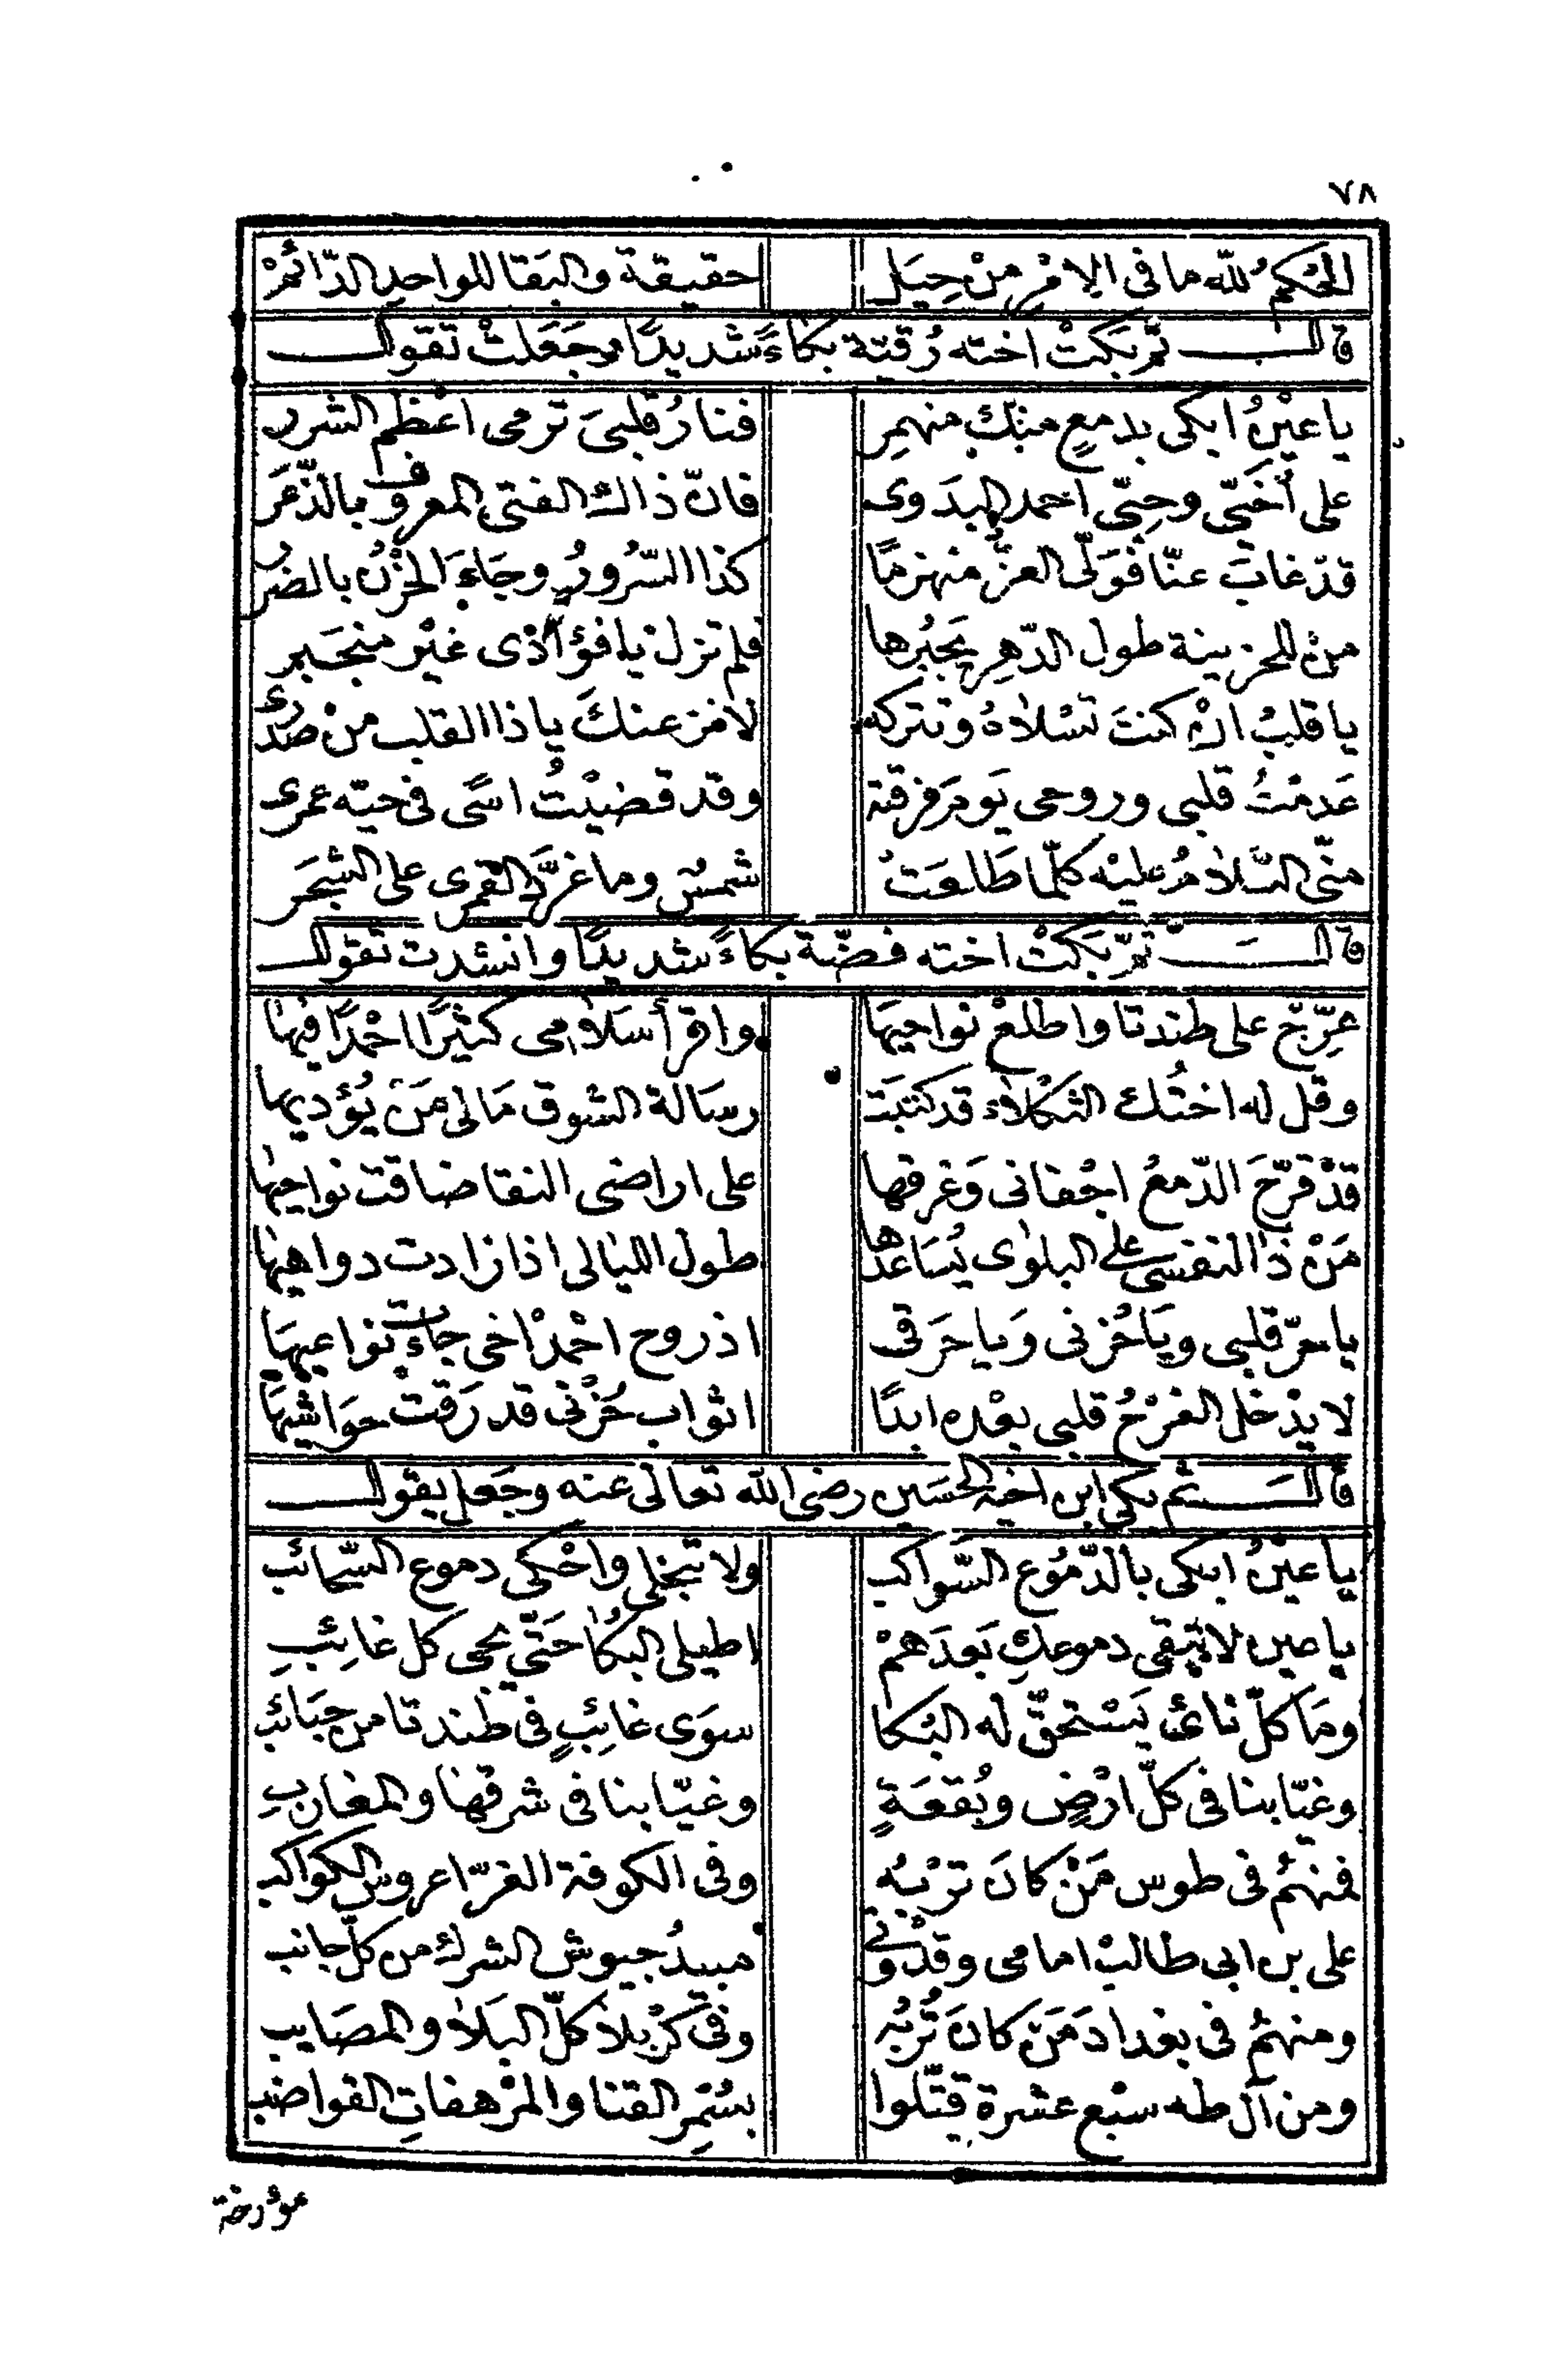 ٧٨
الحُكمُ للّه ما فى الامْرِ مِنْ حِيَل حقيقة والبَقا للواحدِ الدّائمْ
قالــــ ثمّ بَكَتْ اخته رُقيّة بكاءً شديدًا وجَعَلتْ تقولــــ
يا عيْنُ ابكى بدمعٍ منكِ منهمِر فنارُ قلبىَ ترمى اعْظم الشرر
على أخَىّ وحِبّى احمد البدَوى فانّ ذاك الفتى المعروف بالذّعَر
قدْ غابَ عنّا فوَلّى العزُّ منهزمًا كذا السّرُورُ وجَاءَ الحُزْنُ بالضُر
منْ للحزينة طول الدّهرِ يَجبُرها فلم تزل يا فؤادى غيْر منجَبر
يا قلبُ انْ كنتَ تسْلاهُ وتتركه لافرّ عنكَ يا ذا القلب منْ صدْرى
عَدمْتُ قلبى وروحى يَوم فرقته وقد قضيْتُ اسًى فى حبّه عمرى
منّى السَّلامُ عليْه كلّما طَالعَتْ شمسٌ وما غرَّد القمرى على الشجَر
قالــــ ثمّ بَكَتْ اخته فضّة بكاءً شديدًا وانشدت تقولــــ
عرِّجْ على طندتا واطلعْ نواحيهَا واقرأ سَلامى كثيرًا احْمدًا فيها
وقل له اختُك الثكْلاء قد كتبَت رسَالة الشوق مَا لى مَنْ يُؤديها
قدْ قرّحَ الدّمعُ اجْفانى وَغرقها على اراضى النقا ضاقت نواحيها
مَنْ ذا لنفسى على البلوى يُسَاعدُها طول الليالى اذا زادت دواهيها
يا حرّ قلبى ويَا حُزنى وَيا حَرَقى اذ روح احْمدْ اخى جاءت نواعيهَا
لا يدْخل الفرْحُ قلبى بعْده ابدًا اثواب حُزْنى قد رَقت حوَاشيهَا
قالــــ ثم بكى ابن اخيه الحسَين رضى الله تعالى عنه وجَعل يقولــــ
يا عيْنُ ابكى بالدّمُوع السّواكب ولا تبخلى واحْكى دموع السّحائب
يا عين لا تبقى دموعكِ بَعدَهمْ اطيلى البُكا حَتّى يجى كل غائِبِ
ومَا كلّ نائ يَسْتحقّ له البُكا سوَى غائِبٍ فى طندتا من حبَائب
وغيّابنا فى كلّ ارْضٍ وبُقعَةٍ وغيّابنا فى شرقها والمغاربِ
فمنهُم فى طوس مَنْ كانَ ترْبُه وفى الكوفة الغرّا عروس الكواكب
على بن ابى طالبْ امامى وقدْوتى مبيدُ جيوش الشرك من كلّ جانب
ومنهُم فى بغدادَ مَنْ كانَ تُرْبُه وفى كرْبلا كلّ البَلا والمصَايب
ومن آل طه سبْع عشرة قتّلوا بسُمْرِ القنا والمرْهفاتِ القواضب